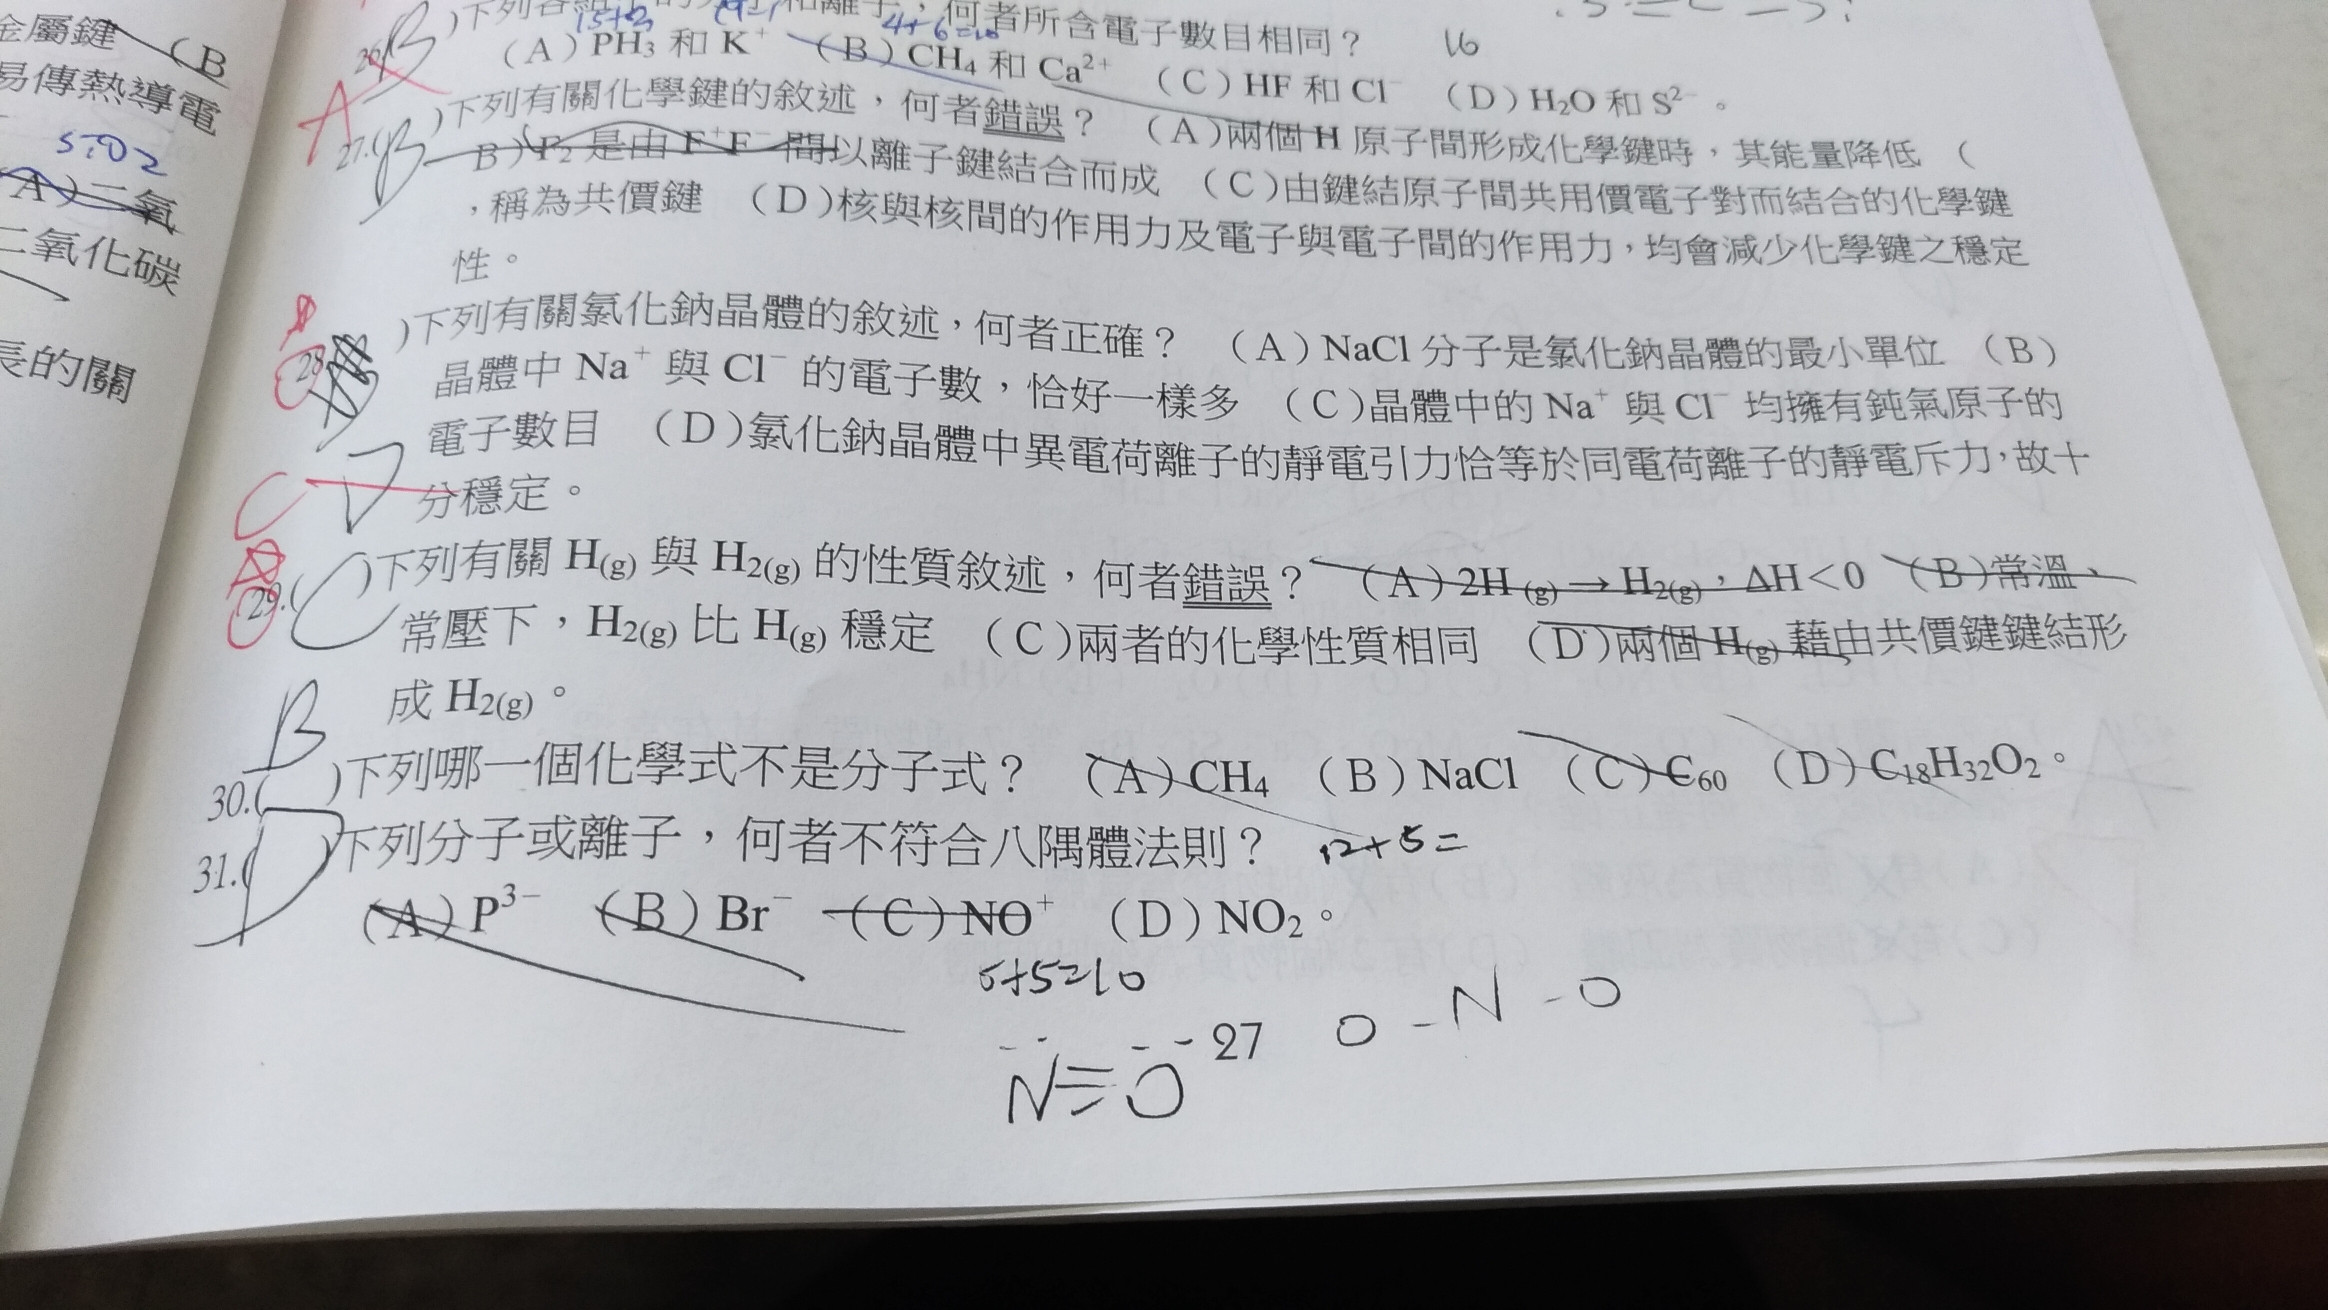 金屬鍵 (B
易傳熱導電
SiO2
(A)二氧
二氧化碳
長的關
和離子，何者所含電子數目相同？ 16
15+3 4+6=10
26. B (A)PH₃ 和 K⁺ (B)CH₄ 和 Ca²⁺ (C)HF 和 Cl⁻ (D)H₂O 和 S²⁻。
A
27.(B )下列有關化學鍵的敘述，何者錯誤？ (A)兩個 H 原子間形成化學鍵時，其能量降低 (
B)F₂ 是由 F⁺F⁻ 間以離子鍵結合而成 (C)由鍵結原子間共用價電子對而結合的化學鍵
，稱為共價鍵 (D)核與核間的作用力及電子與電子間的作用力，均會減少化學鍵之穩定
性。
28. )下列有關氯化鈉晶體的敘述，何者正確？ (A)NaCl 分子是氯化鈉晶體的最小單位 (B)
晶體中 Na⁺ 與 Cl⁻ 的電子數，恰好一樣多 (C)晶體中的 Na⁺ 與 Cl⁻ 均擁有鈍氣原子的
電子數目 (D)氯化鈉晶體中異電荷離子的靜電引力恰等於同電荷離子的靜電斥力，故十
C D 分穩定。
29.(C )下列有關 H(g) 與 H₂(g) 的性質敘述，何者錯誤？ (A)2H(g)→H₂(g)，ΔH＜0 (B)常溫、
常壓下，H₂(g) 比 H(g) 穩定 (C)兩者的化學性質相同 (D)兩個 H(g) 藉由共價鍵鍵結形
成 H₂(g)。
30.(B )下列哪一個化學式不是分子式？ (A)CH₄ (B)NaCl (C)C₆₀ (D)C₁₈H₃₂O₂。
31.(D )下列分子或離子，何者不符合八隅體法則？ 12+5=
(A)P³⁻ (B)Br⁻ (C)NO⁺ (D)NO₂。
5+5=10
27 O-N-O
N≡O